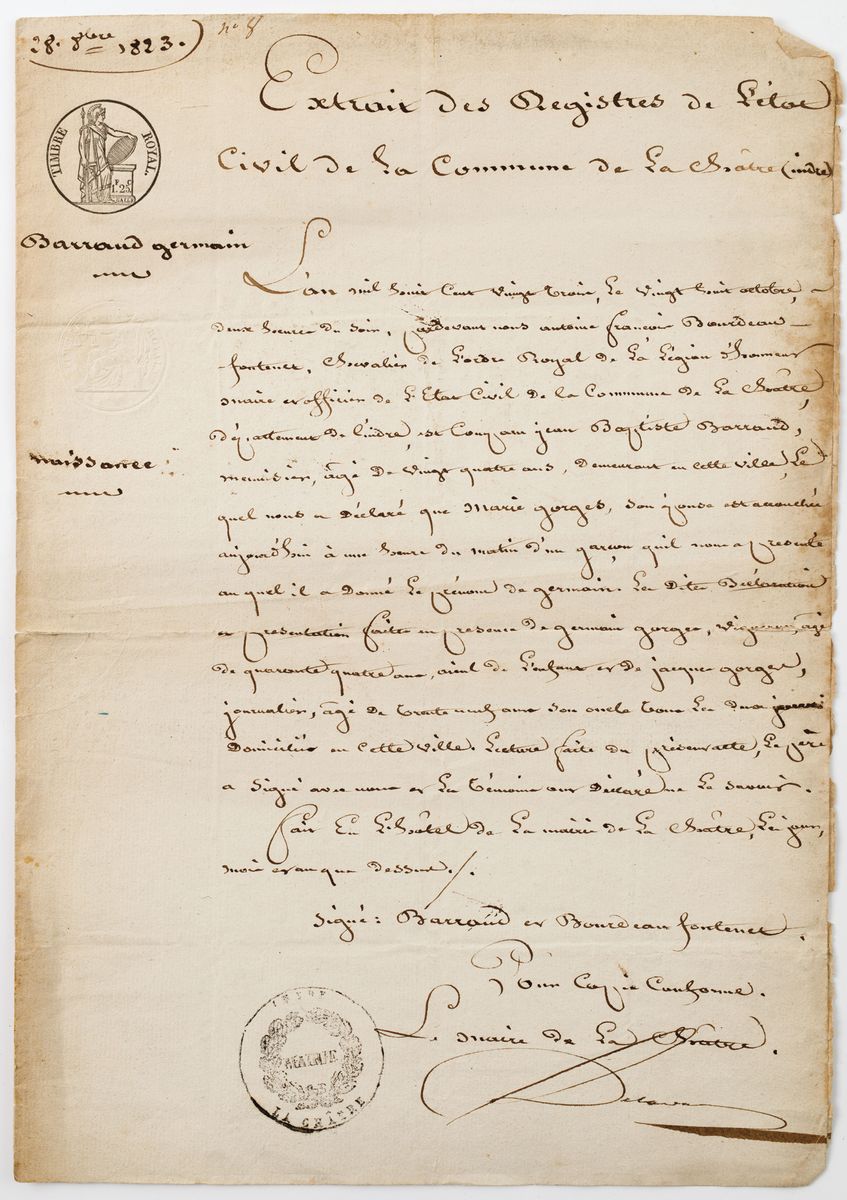 28. 8bre 1823.
n° 8
Extrait des Registres de L'état
Civil de La Commune de La Châtre (indre)
TIMBRE ROYAL.
1F. 25C
Barraud germain
L'an mil huit Cent vingt trois, Le vingt huit octobre,
deux heures du soir, pardevant nous antoine françois Bourdeau
fontenet, Chevalier de L'ordre Royal de La Légion d'honneur
maire et officier de L'Etat Civil de la Commune de La Châtre,
département de L'indre, est Comparu jean Baptiste Barraud,
naissance
menuisier, âgé de vingt quatre ans, demeurant en cette ville, Le
quel nous a déclaré que Marie gorges, son épouse est accouchée
aujourd'hui à une heure du matin d'un garçon qu'il nous a presenté
au quel il a donné Le prénom de germain. Les dites Déclaration
et presentation faites en presence de germain gorges, vigneron, âgé
de quarante quatre ans, aieul de L'enfant et de jacques gorges,
journalier, âgé de trente ans son oncle tous Les deux
domiciliés en cette ville. Lecture faite du présent acte, Le père
a signé avec nous et Les témoins ont déclaré ne Le savoir.
fait En L'hôtel de La mairie de La Châtre, Les jour,
mois et an que dessus./.
Signé: Barraud et Bourdeau fontenet.
Pour Copie Conforme.
Le maire de La Châtre.
INDRE
MAIRIE
LA CHÂTRE